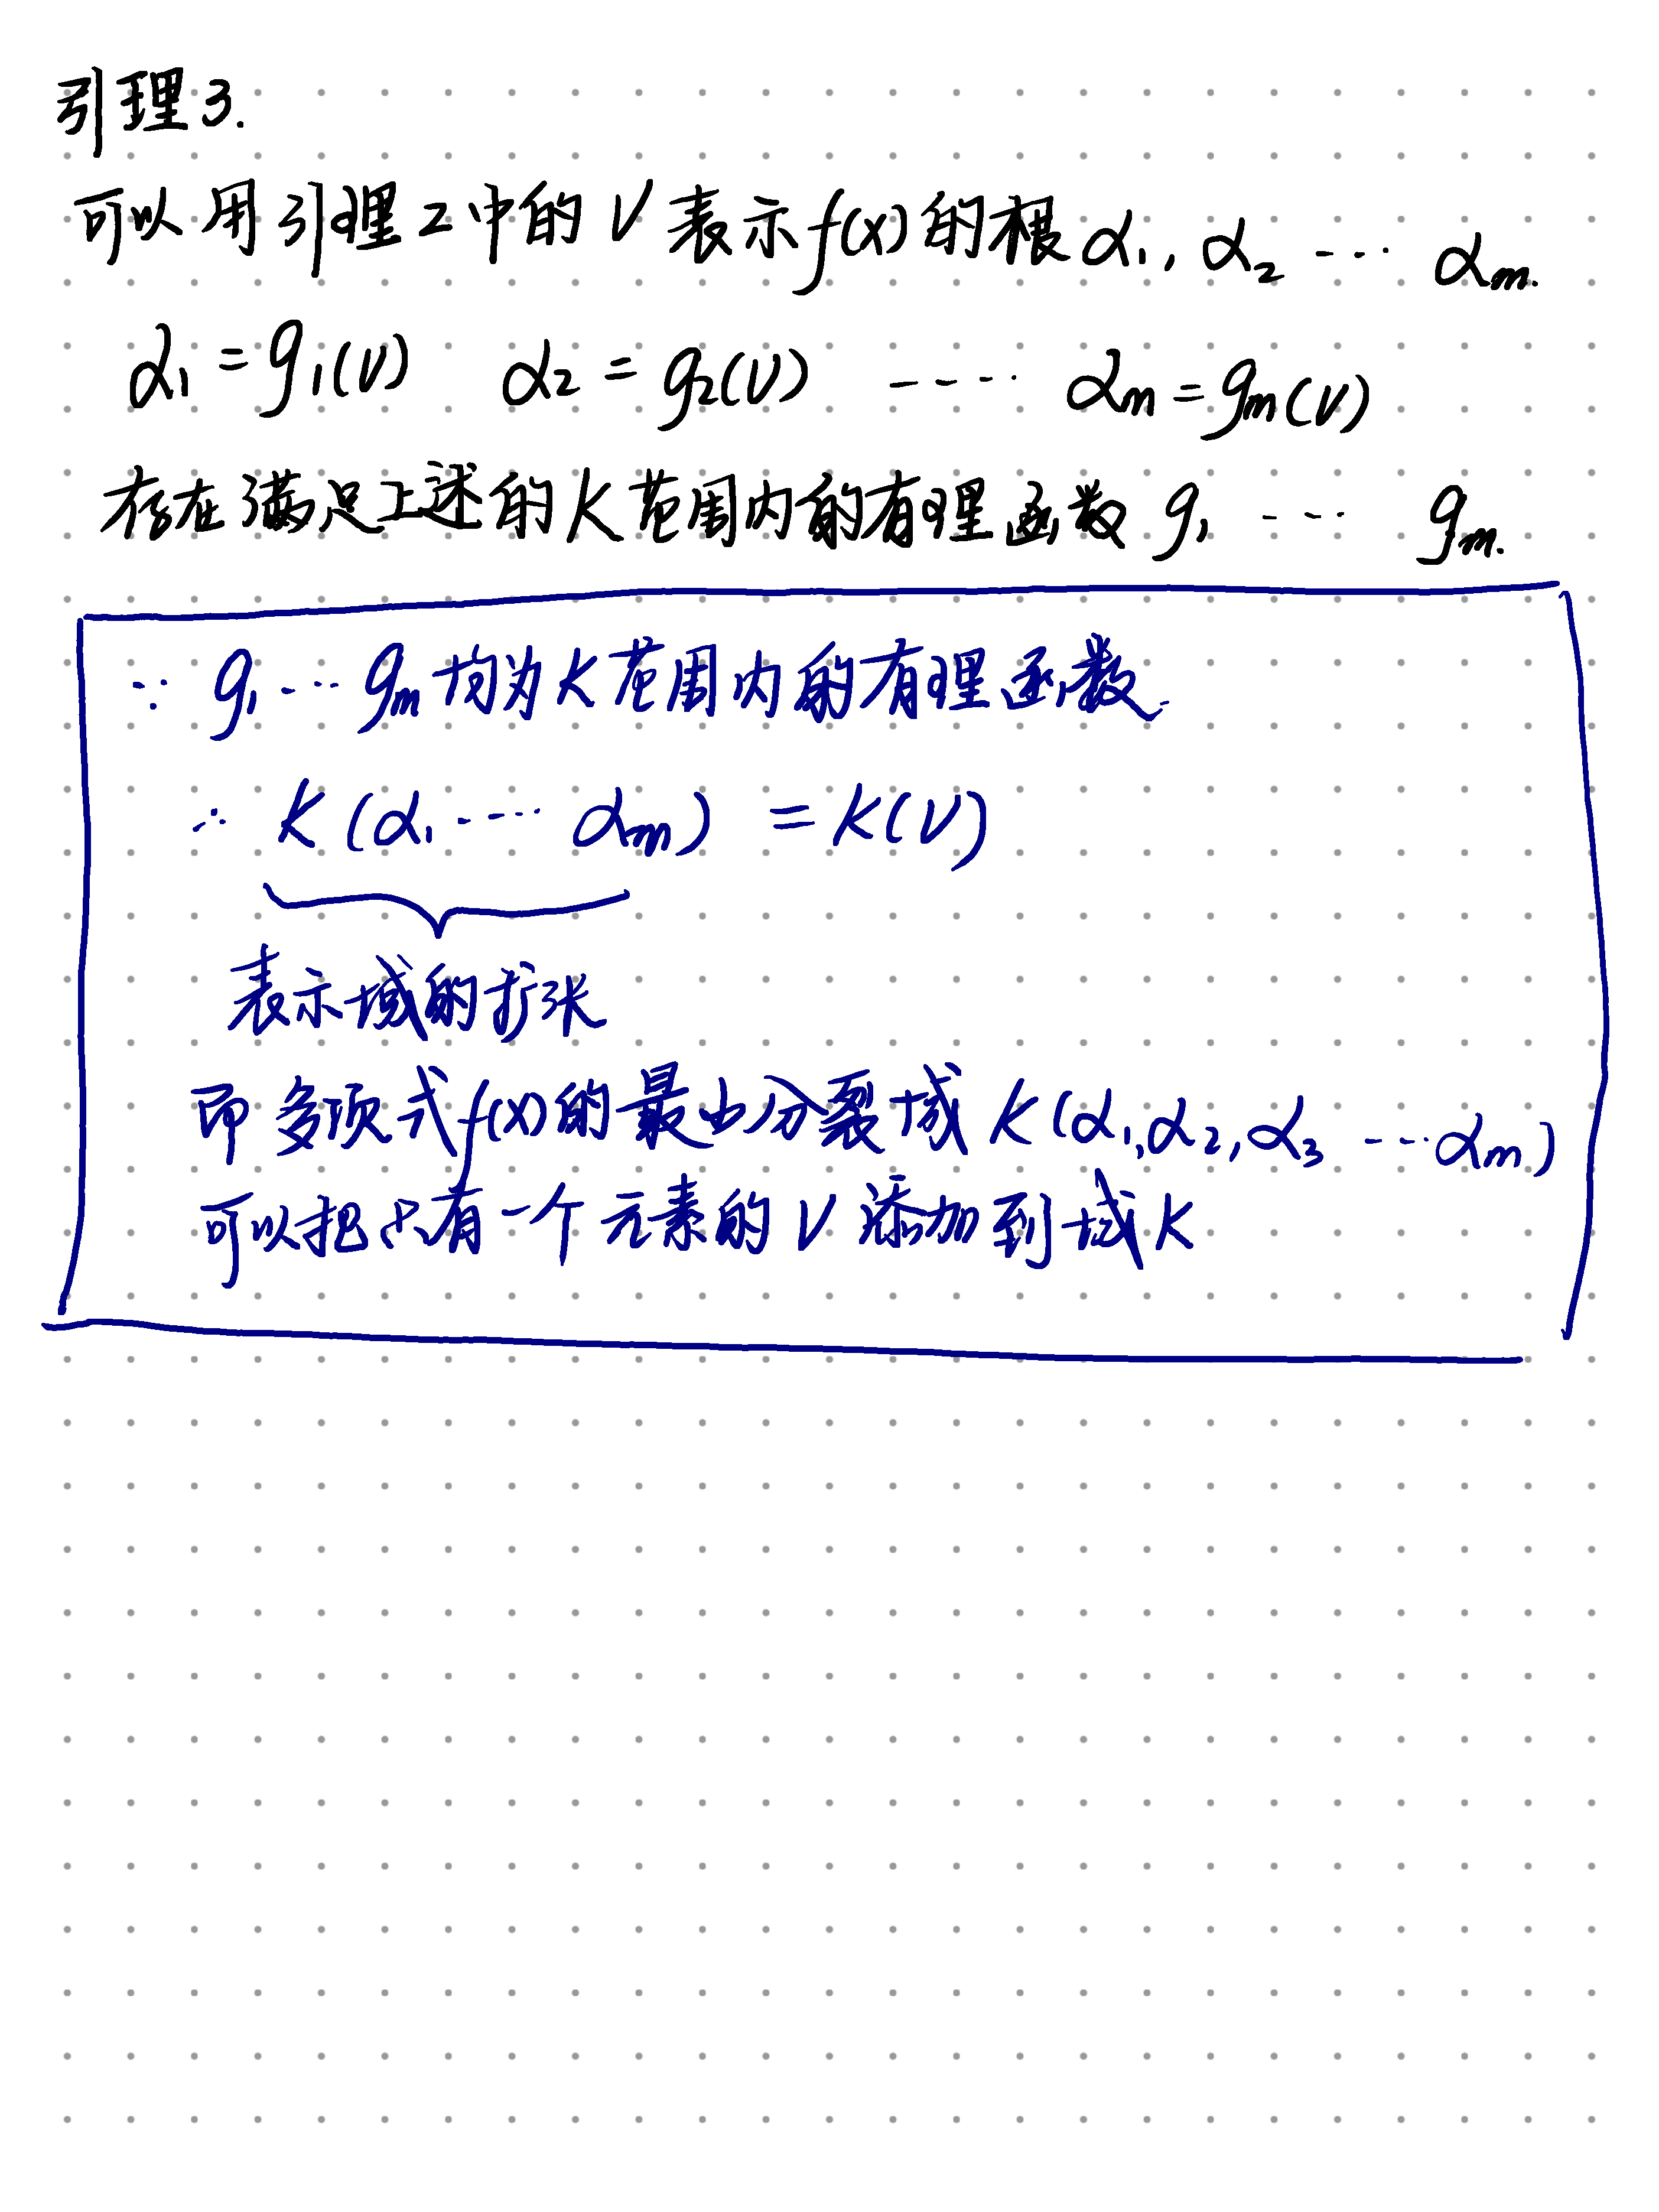 引理3.
可以用引理2中的V表示f(x)的根α₁, α₂ ⋯ αₘ.
α₁=g₁(V) α₂=g₂(V) ⋯⋯ αₘ=gₘ(V)
存在满足上述的K范围内的有理函数 g₁ ⋯ gₘ.
∵ g₁⋯gₘ均为K范围内的有理函数.
∴ K(α₁⋯⋯αₘ) = K(V)
表示域的扩张
即多项式f(x)的最小分裂域K(α₁,α₂,α₃ ⋯αₘ)
可以把只有一个元素的V添加到域K